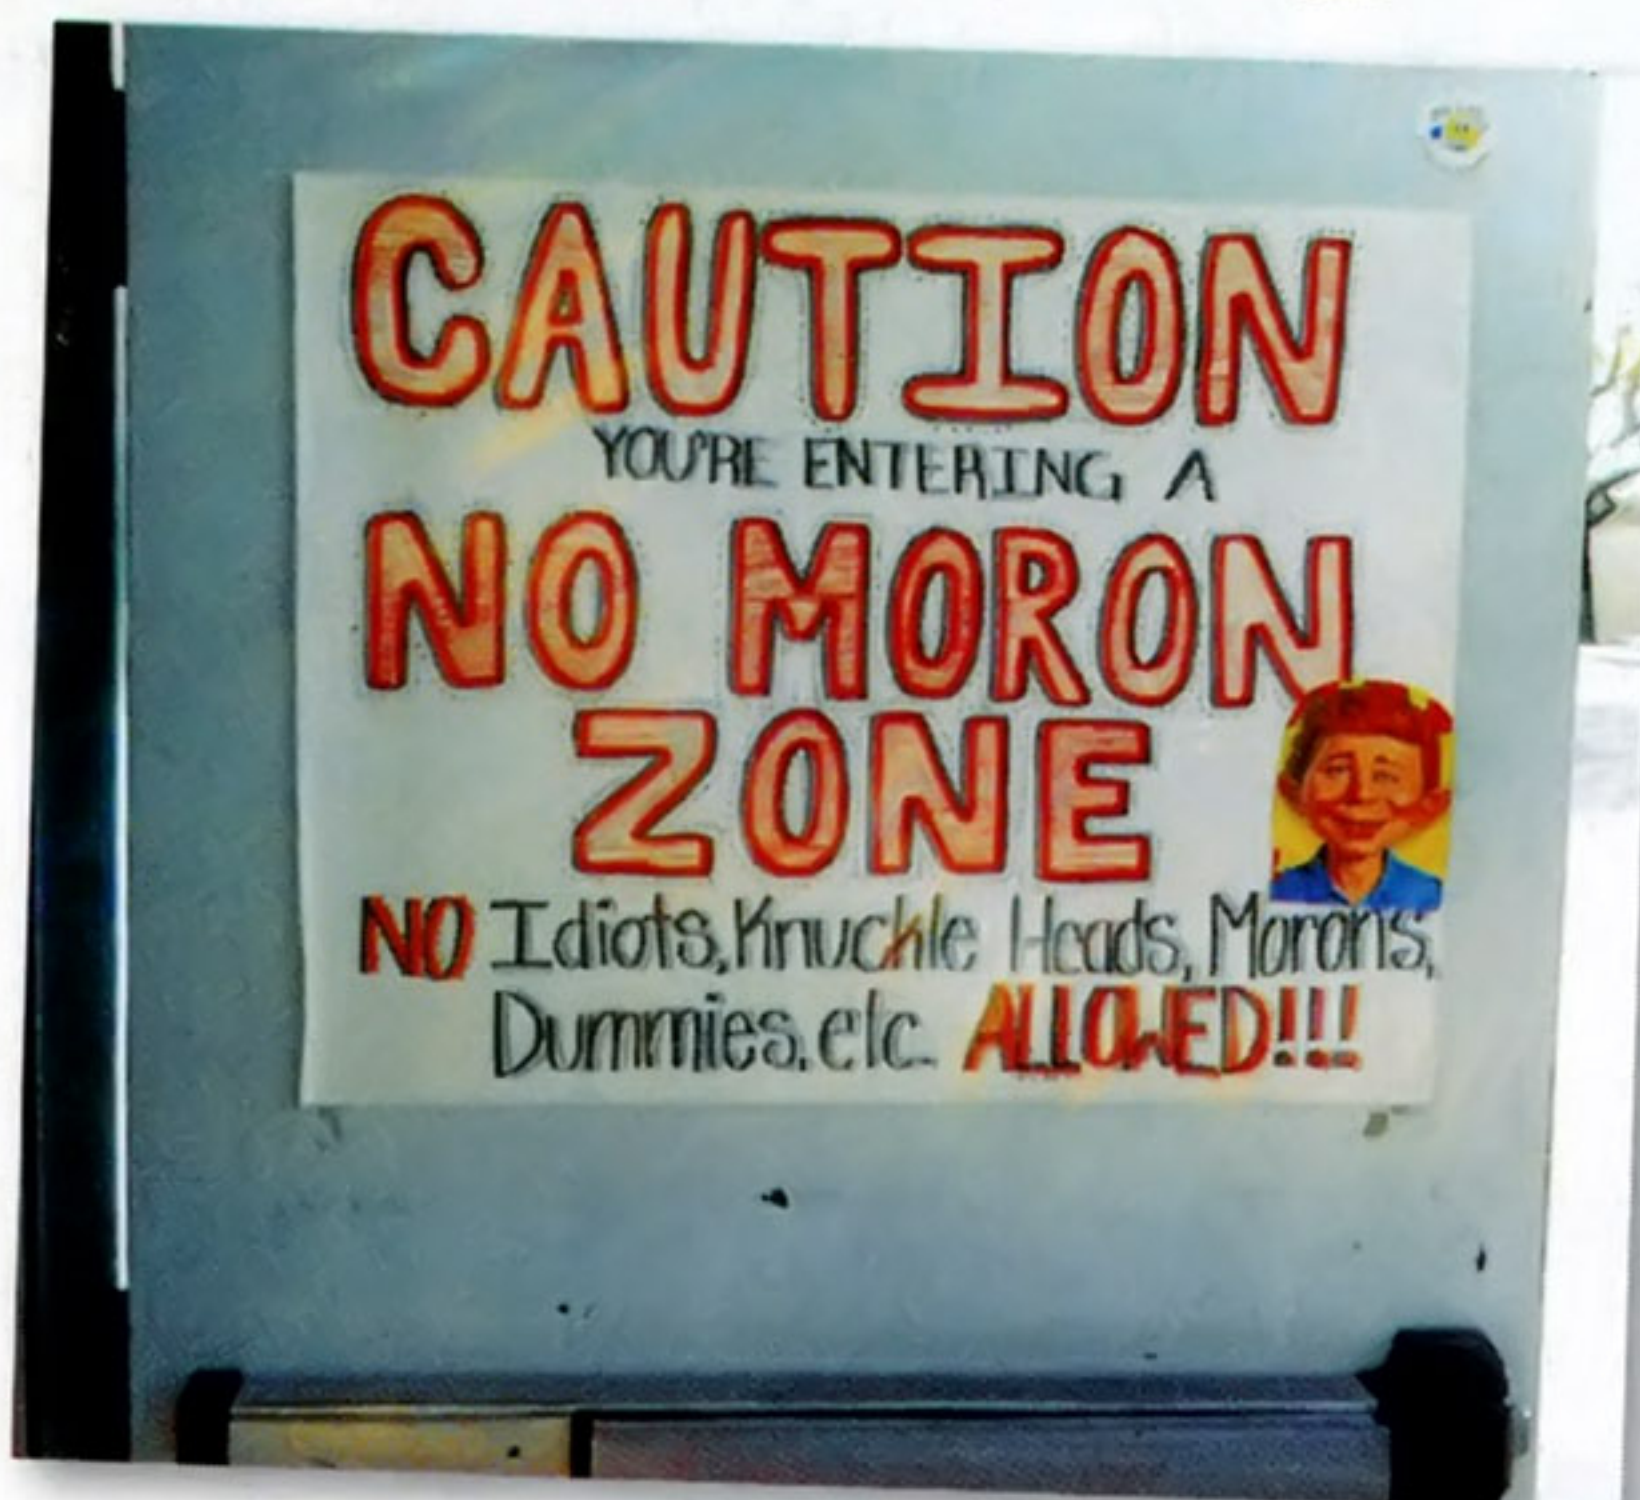 CAUTION
YOU'RE ENTERING A
NO MORON
ZONE
NO Idiots, Knuckle Heads, Morons,
Dummies, etc. ALLOWED!!!